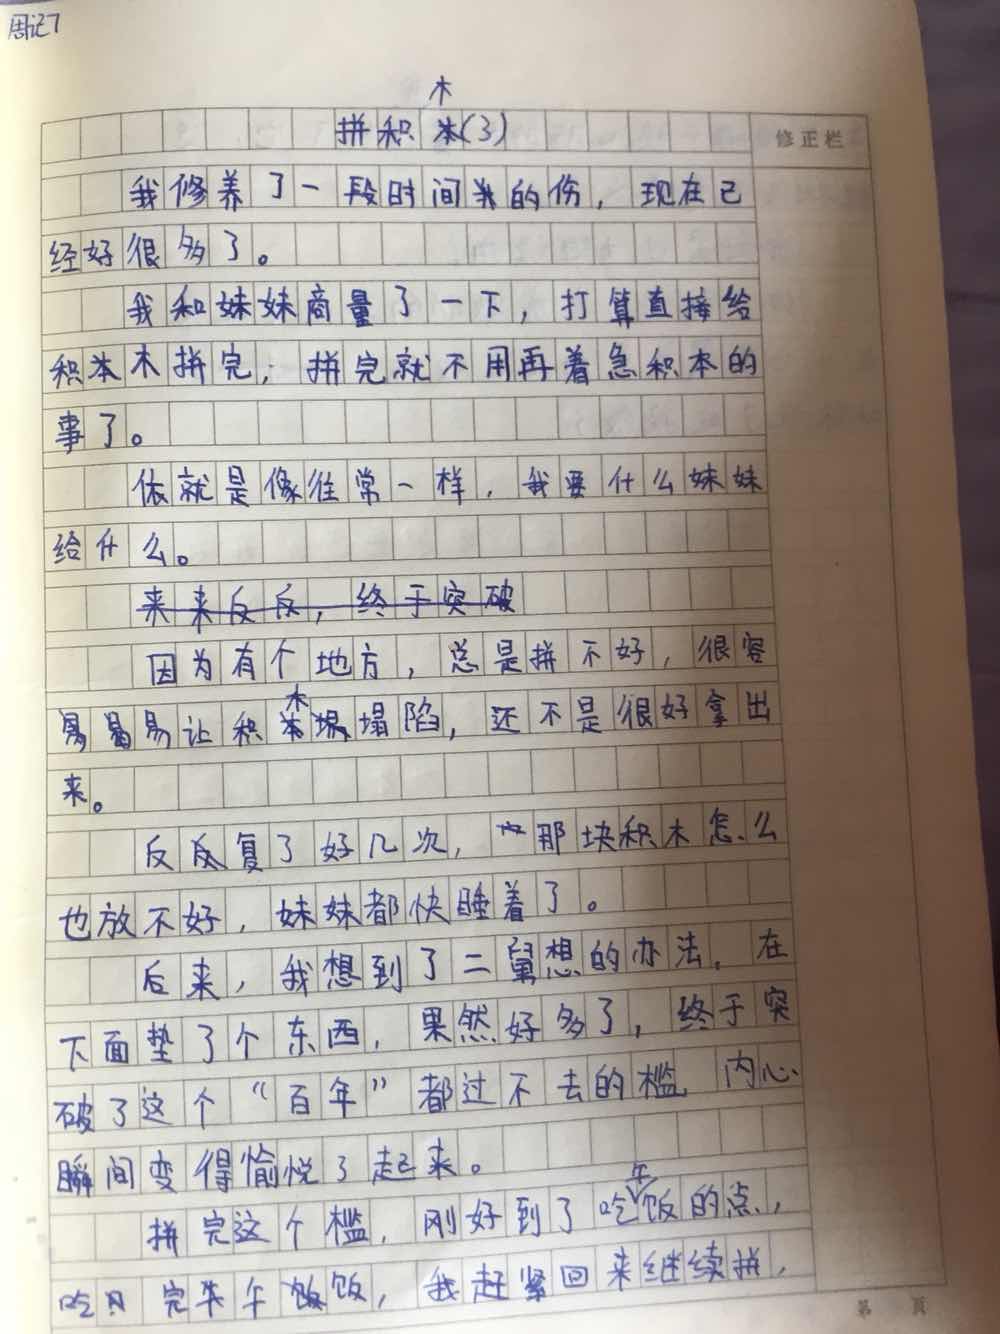 周记7
木
拼积本(3)
修正栏
我修养了一段时间我的伤，现在已
经好很多了。
我和妹妹商量了一下，打算直接给
积本木拼完，拼完就不用再着急积本的
事了。
依就是像往常一样，我要什么妹妹
给什么。
来来反反，终于突破
因为有个地方，总是拼不好，很容
易易易让积木塌塌陷，还不是很好拿出
来。
反反复了好几次，那块积木怎么
也放不好，妹妹都快睡着了。
后来，我想到了二舅想的办法，在
下面垫了个东西，果然好多了，终于突
破了这个“百年”都过不去的槛，内心
瞬间变得愉悦了起来。
拼完这个槛，刚好到了吃午饭的点，
吃 完午饭，我赶紧回来继续拼，
第 页